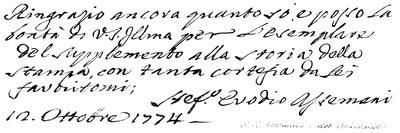 Ringrazio ancora quanto sò, e posso la
bontà di V.S. Illma per l'esemplare
del supplemento alla storia della
stampa, con tanta cortesia da lei
favoritomi;
Stef.º Evodio Assemani
12. Ottobre 1774